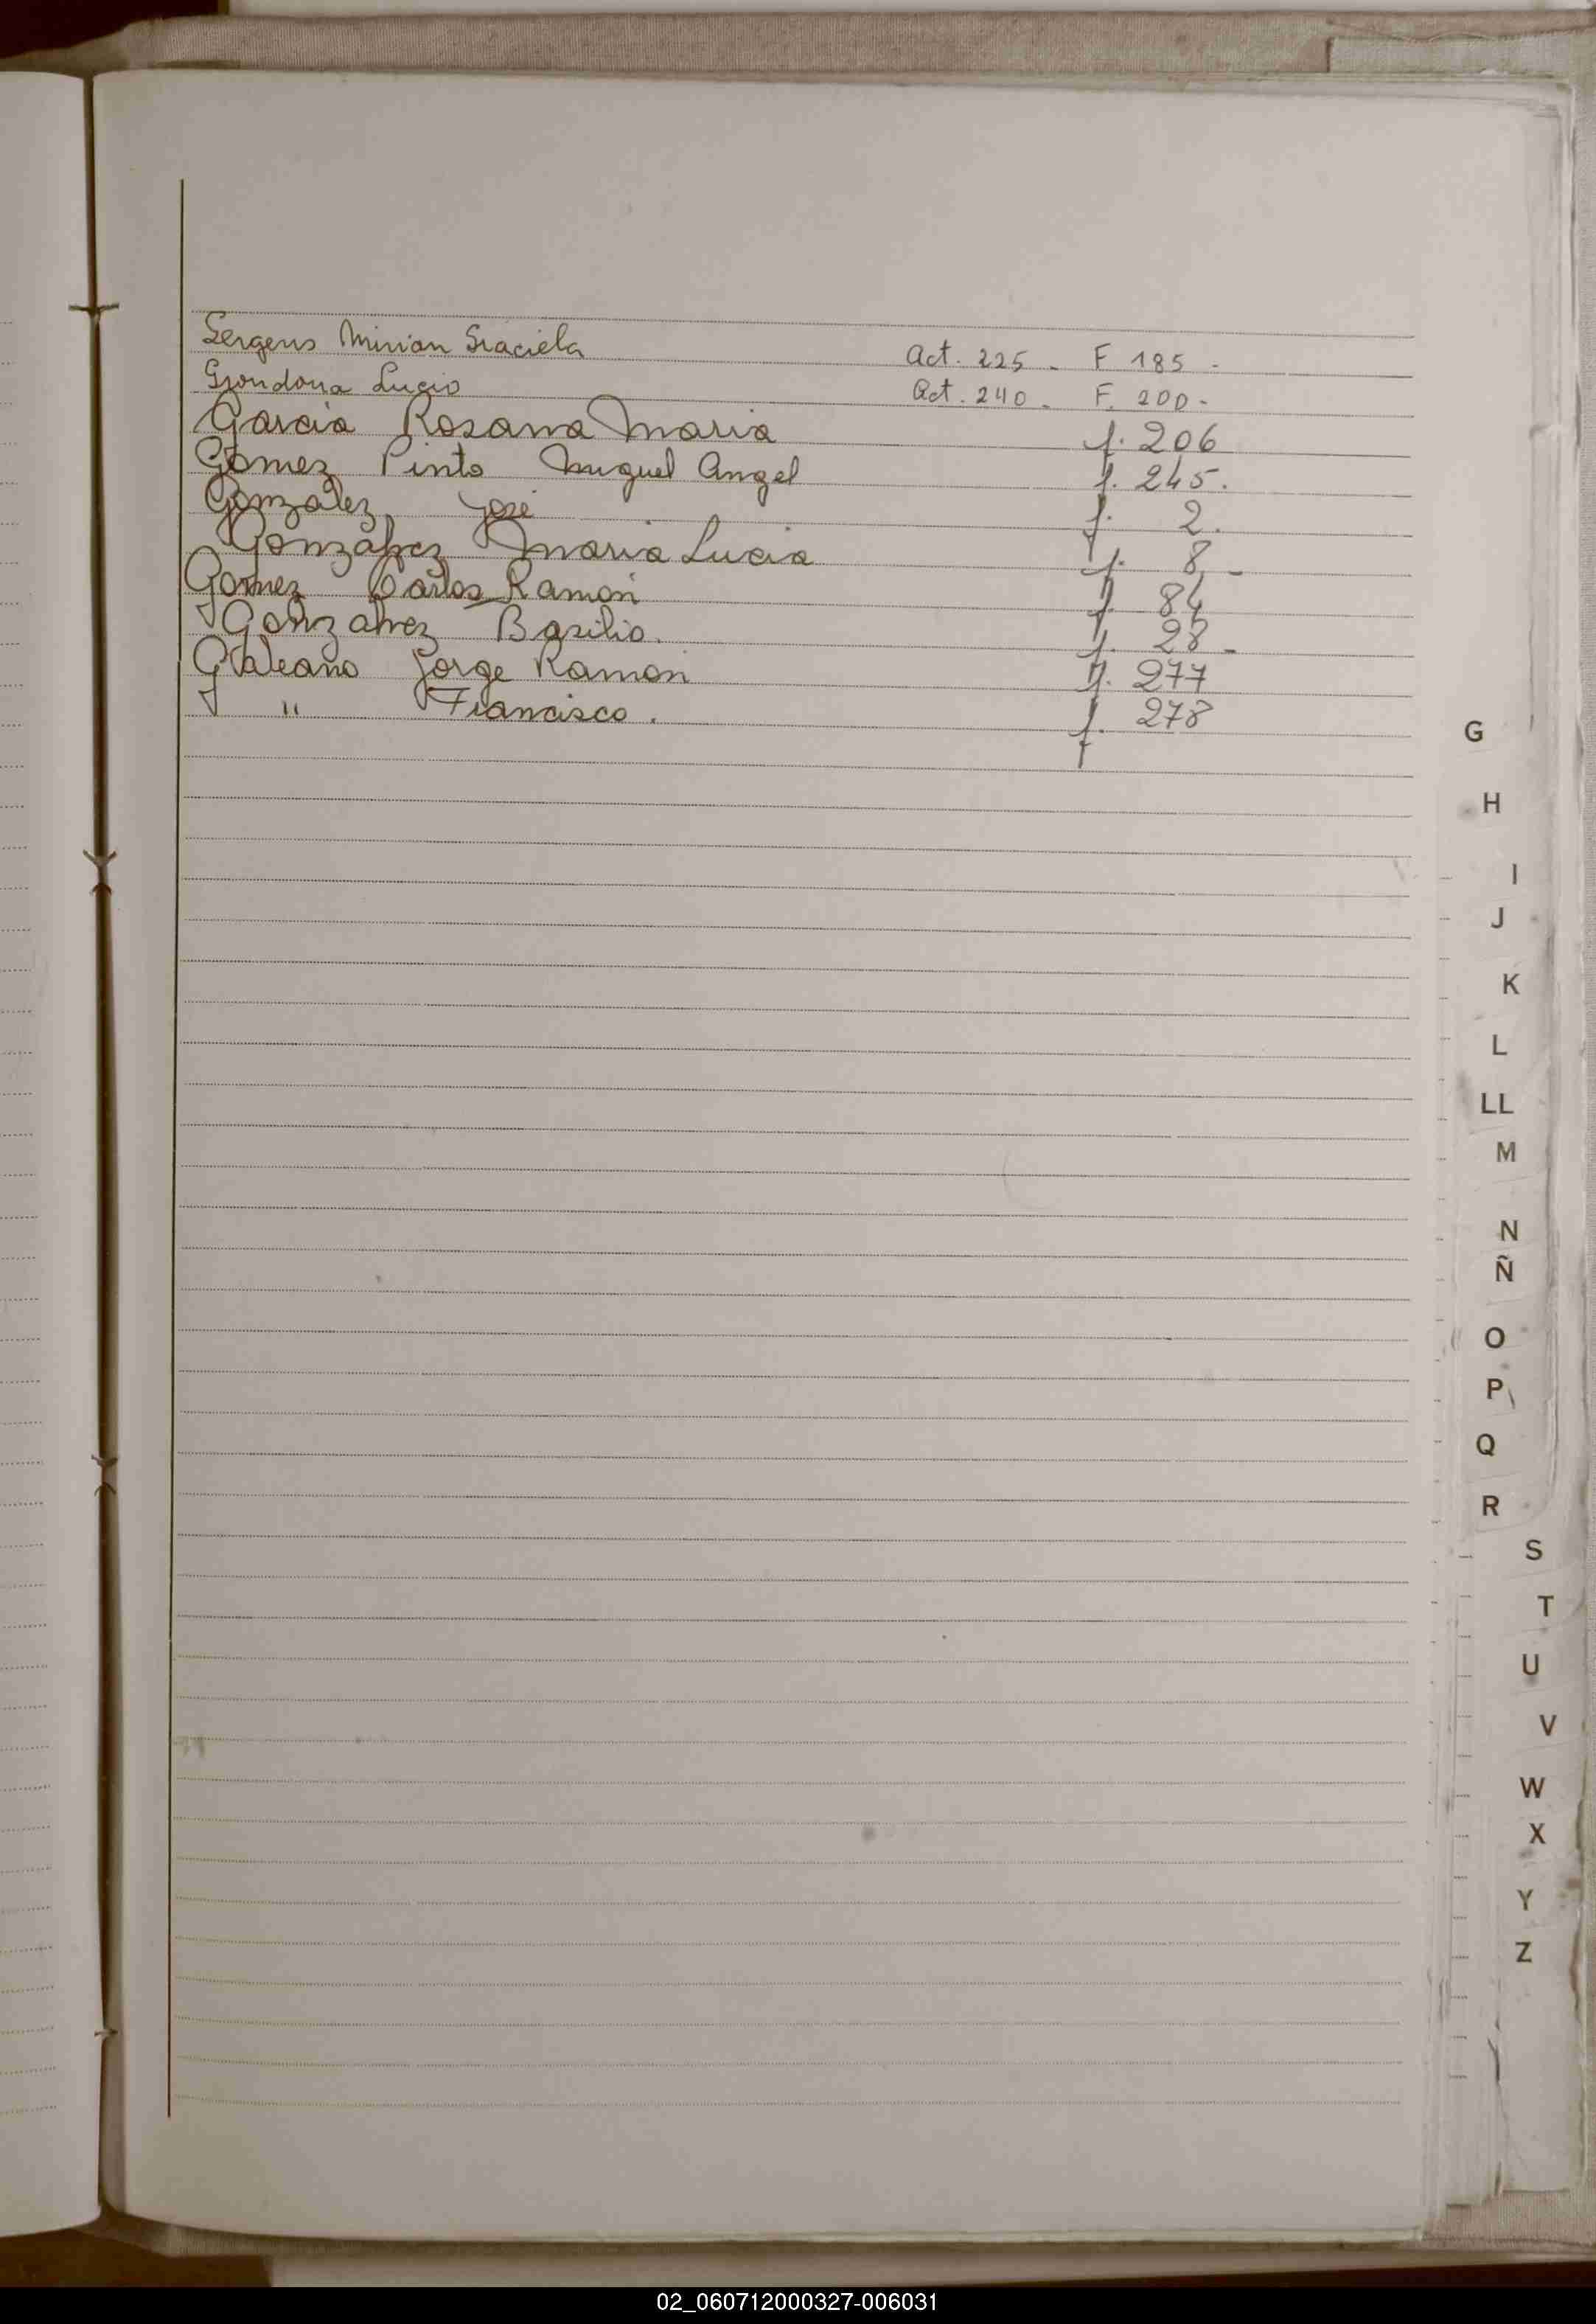 Gergens Mirian Graciela Act. 225 - F 185 -
Grondona Lucio Act. 240 - F. 200 -
Garcia Rosana Maria f. 206
Gomez Pinto Miguel Angel f. 245.
Gonzalez José f. 2.
Gonzalez Maria Lucia f. 8 -
Gomez Carlos Ramon f. 84
Gonzalez Basilio. f. 28 -
Galeano Jorge Ramon f. 277
" Francisco. f. 278
G
H
I
J
K
L
LL
M
N
Ñ
O
P
Q
R
S
T
U
V
W
X
Y
Z
02_060712000327-006031